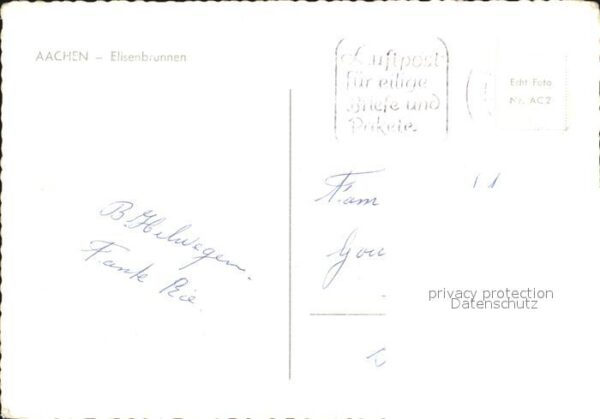 AACHEN – Elisenbrunnen
Luftpost
für eilige
Briefe und
Pakete.
Echt Foto
Nr. AC 2
Fam
B. Helwegen.
Tante Rie.
privacy protection
Datenschutz